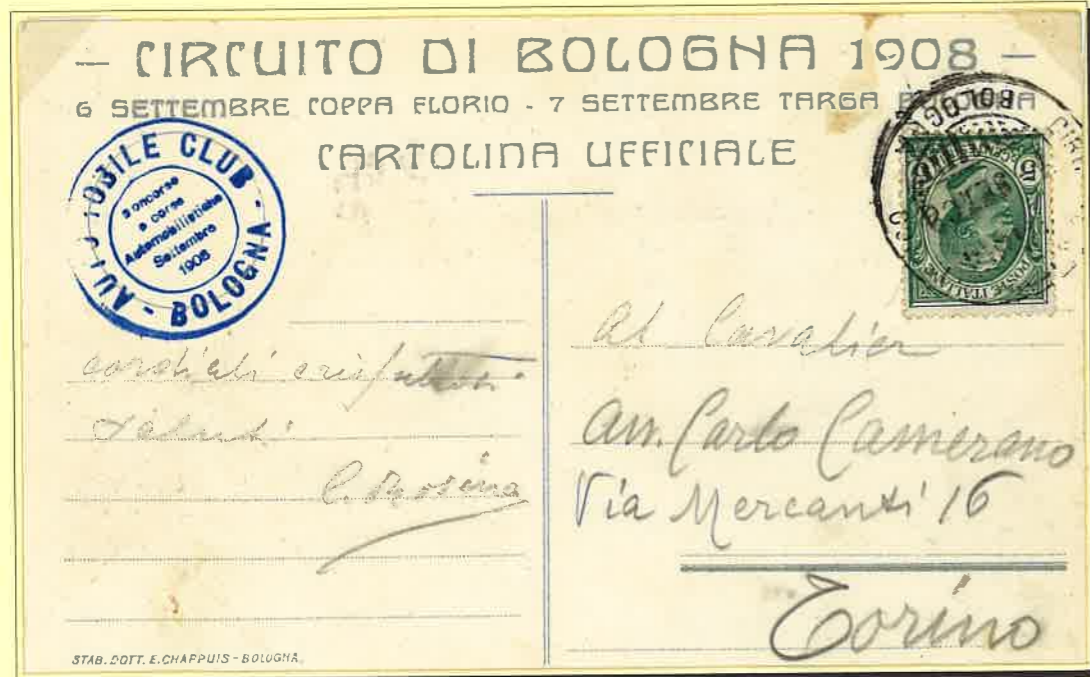 — CIRCUITO DI BOLOGNA 1908 —
6 SETTEMBRE COPPA FLORIO - 7 SETTEMBRE TARGA BOLOGNA
CARTOLINA UFFICIALE
AUTOMOBILE CLUB - BOLOGNA -
Concorse
e corse
Automobilistiche
Settembre
1908
BOLOGNA
5
POSTE ITALIANE
cordiali
saluti
C. Rosina
Al Cavalier
Avv. Carlo Camerano
Via Mercanti 16
Torino
STAB. DOTT. E. CHAPPUIS - BOLOGNA